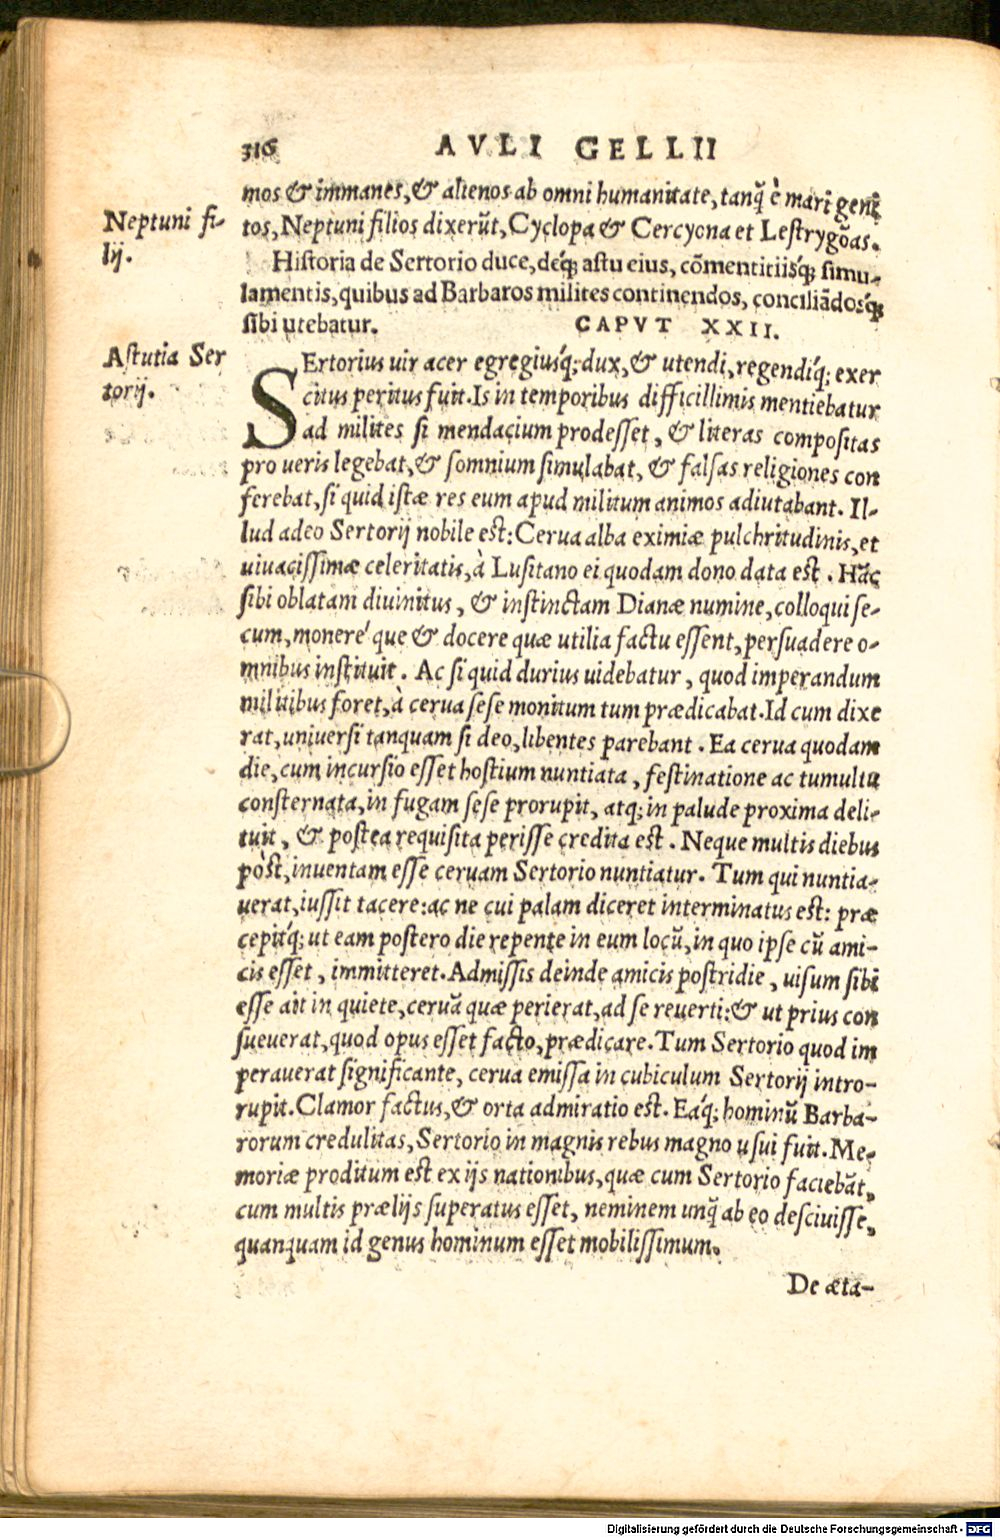 316 AVLI GELLII
mos & immanes, & alienos ab omni humanitate, tanq̃ è mari geni
Neptuni fi-
lij.
tos, Neptuni filios dixerũt, Cyclopa & Cercyona et Lestrygõas.
Historia de Sertorio duce, déq; astu eius, cõmentitiisq́; simu-
lamentis, quibus ad Barbaros milites continendos, conciliãdosq́;
sibi utebatur. CAPVT XXII.
Astutia Ser
torij.
SErtorius uir acer egregiusq́; dux, & utendi, regendiq́; exer
citus peritus fuit. Is in temporibus difficillimis mentiebatur
ad milites si mendacium prodesset, & literas compositas
pro ueris legebat, & somnium simulabat, & falsas religiones con
ferebat, si quid istæ res eum apud militum animos adiutabant. Il-
lud adeo Sertorij nobile est: Cerua alba eximiæ pulchritudinis, et
uiuacissimæ celeritatis, à Lusitano ei quodam dono data est. Hãc
sibi oblatam diuinitus, & instinctam Dianæ numine, colloqui se-
cum, moneré que & docere quæ utilia factu essent, persuadere o-
mnibus instituit. Ac si quid durius uidebatur, quod imperandum
militibus foret, à cerua sese monitum tum prædicabat. Id cum dixe
rat, uniuersi tanquam si deo, libentes parebant. Ea cerua quodam
die, cum incursio esset hostium nuntiata, festinatione ac tumultu
consternata, in fugam sese prorupit, atq; in palude proxima deli-
tuit, & postea requisita perisse credita est. Neque multis diebus
pòst, inuentam esse ceruam Sertorio nuntiatur. Tum qui nuntia-
uerat, iussit tacere: ac ne cui palam diceret interminatus est: præ
cepitq́; ut eam postero die repente in eum locũ, in quo ipse cũ ami-
cis esset, immitteret. Admissis deinde amicis postridie, uisum sibi
esse ait in quiete, ceruã quæ perierat, ad se reuerti: & ut prius con
sueuerat, quod opus esset facto, prædicare. Tum Sertorio quod im
perauerat significante, cerua emissa in cubiculum Sertorij intro-
rupit. Clamor factus, & orta admiratio est. Eaq́; hominũ Barba-
rorum credulitas, Sertorio in magnis rebus magno usui fuit. Me-
moriæ proditum est ex ijs nationibus, quæ cum Sertorio faciebãt,
cum multis prælijs superatus esset, neminem unq̃ ab eo desciuisse,
quanquam id genus hominum esset mobilissimum.
De æta-
Digitalisierung gefördert durch die Deutsche Forschungsgemeinschaft - DFG